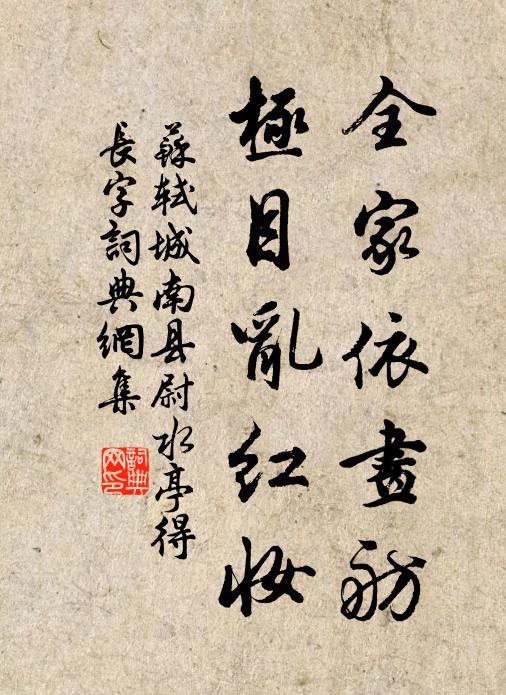 全家依畫舫
極目亂紅妝
蘇軾城南县尉水亭得
長字詞典網集
詞典
网印